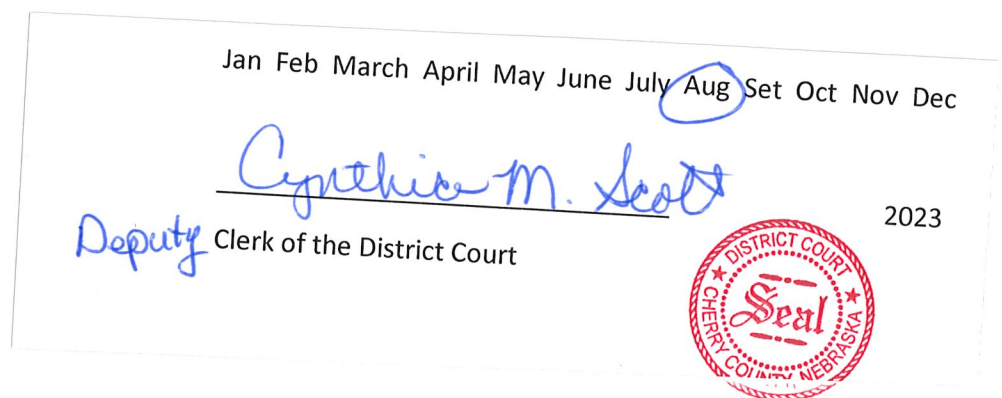 Jan Feb March April May June July Aug Set Oct Nov Dec
Cynthia M. Scott
2023
Deputy Clerk of the District Court
DISTRICT COURT
Seal
CHERRY COUNTY, NEBRASKA